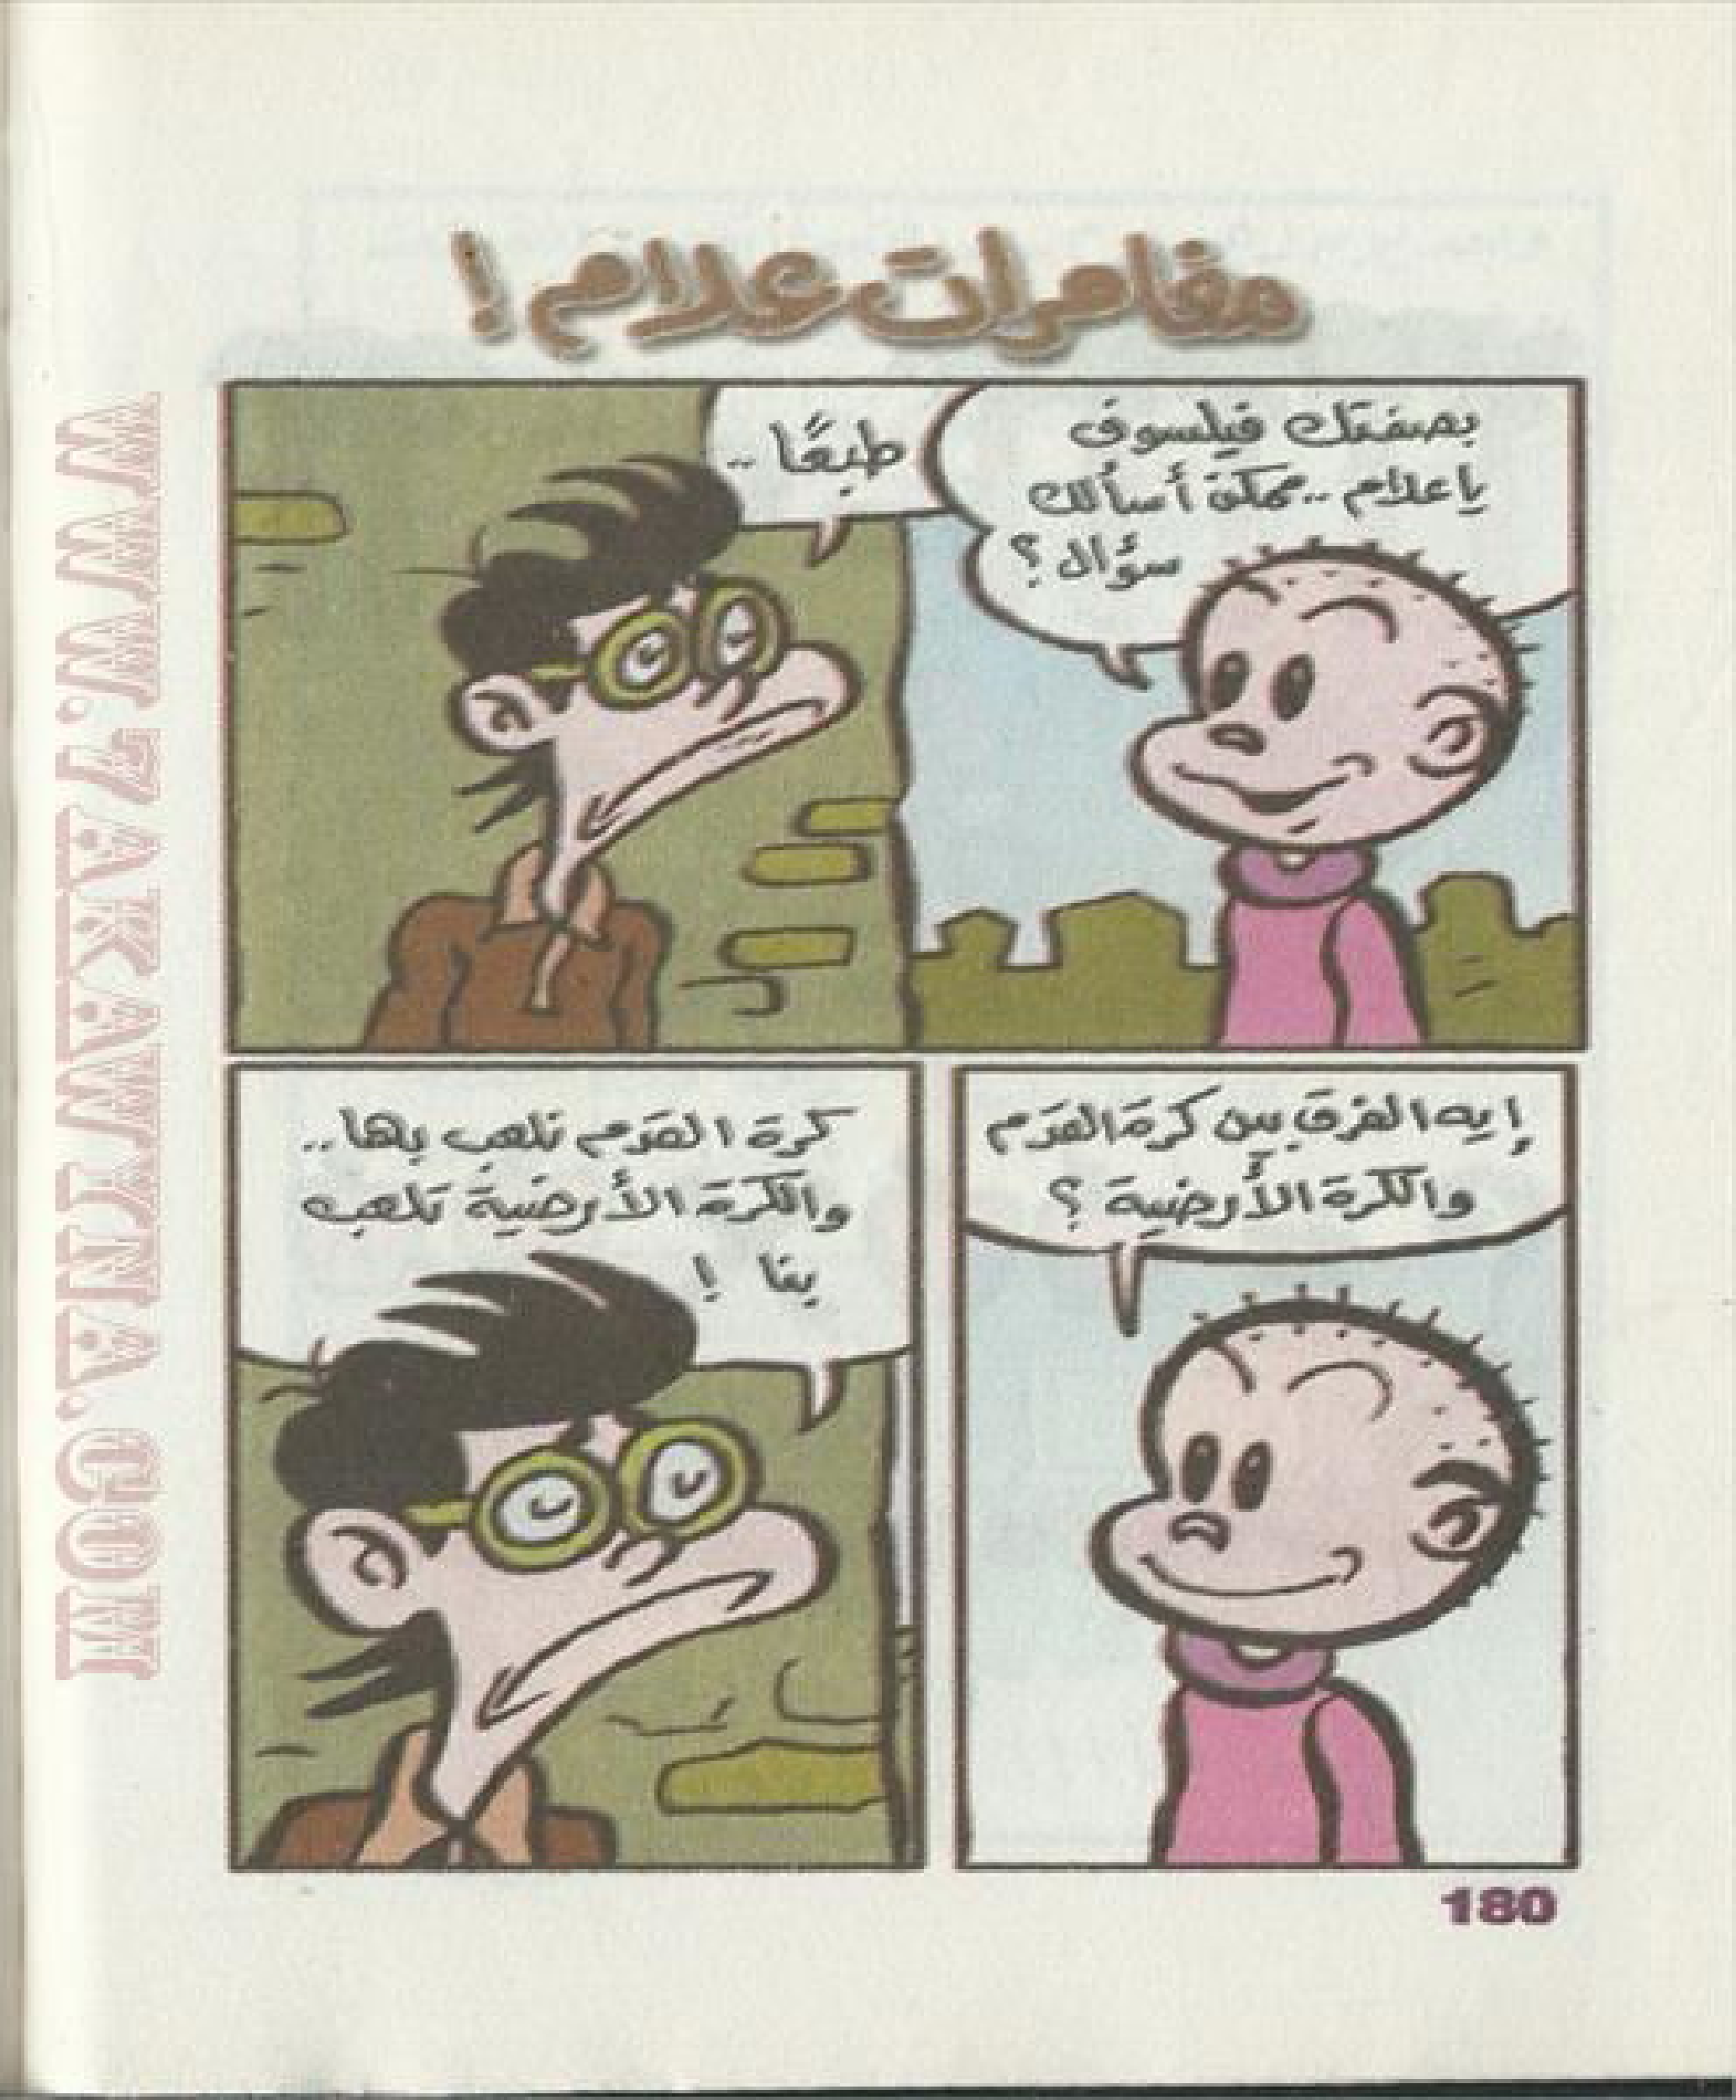 مغامرات علام!
بصفتك فيلسوف
ياعلام..ممكن أسألك
سؤال؟
طبعًا..
إيه الفرق بين كرة القدم
والكرة الأرضية؟
كرة القدم نلعب بها..
والكرة الأرضية تلعب
بنا !
180
WWW.7AKAWTNA.COM